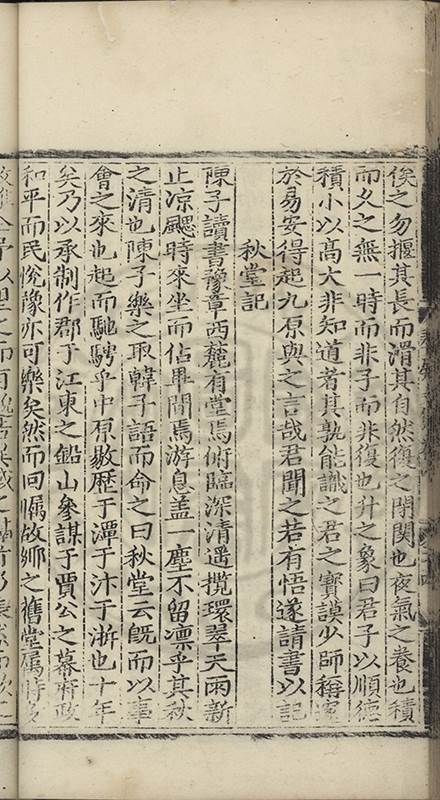 俟之勿揠其長而滑其自然復之閉関也夜氣之養也積
而久之無一時而非子而非復也升之象曰君子以順德
積小以高大非知道者其孰能識之君之實謨少師稱邃
於易安得起九原與之言哉君聞之若有悟遂請書以記
秋堂記
陳子讀書豫章西麓有堂焉俯臨深清遥攬環翠天雨新
止凉颸時來坐而佔畢間焉游息盖一塵不留凛乎其秋
之清也陳子樂之取韓子語而命之曰秋堂云旣而以事
會之來也起而馳騁乎中原敭歴于潭于汴于浙也十年
矣乃以承制作郡于江東之鈆山參謀于賈公之幕府政
和平而民恱豫亦可樂矣然而回矚故鄉之舊堂属時多